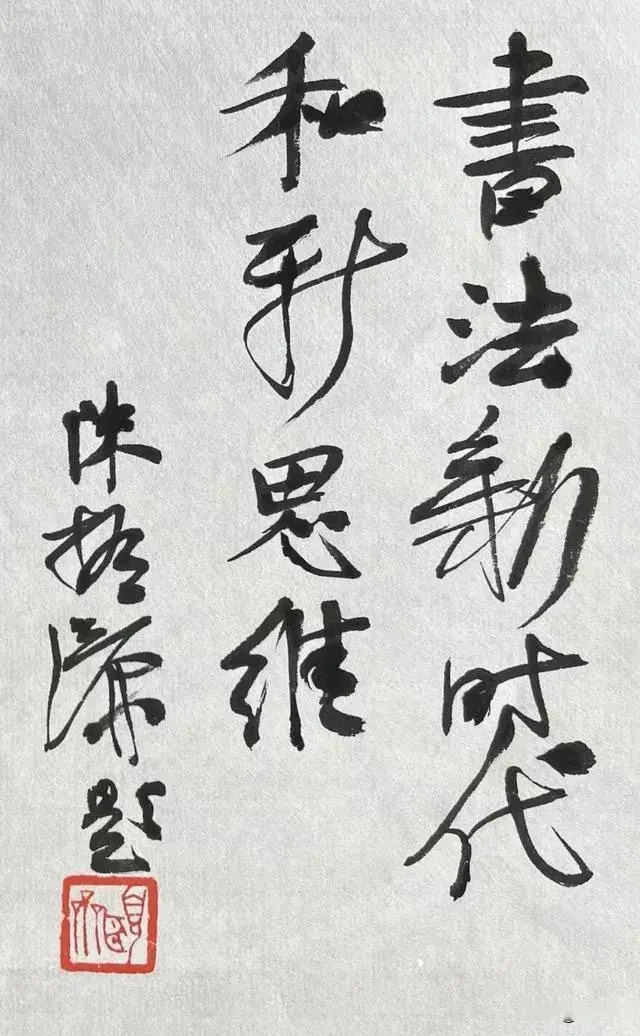 書法新时代
和新思维
陈振濂题